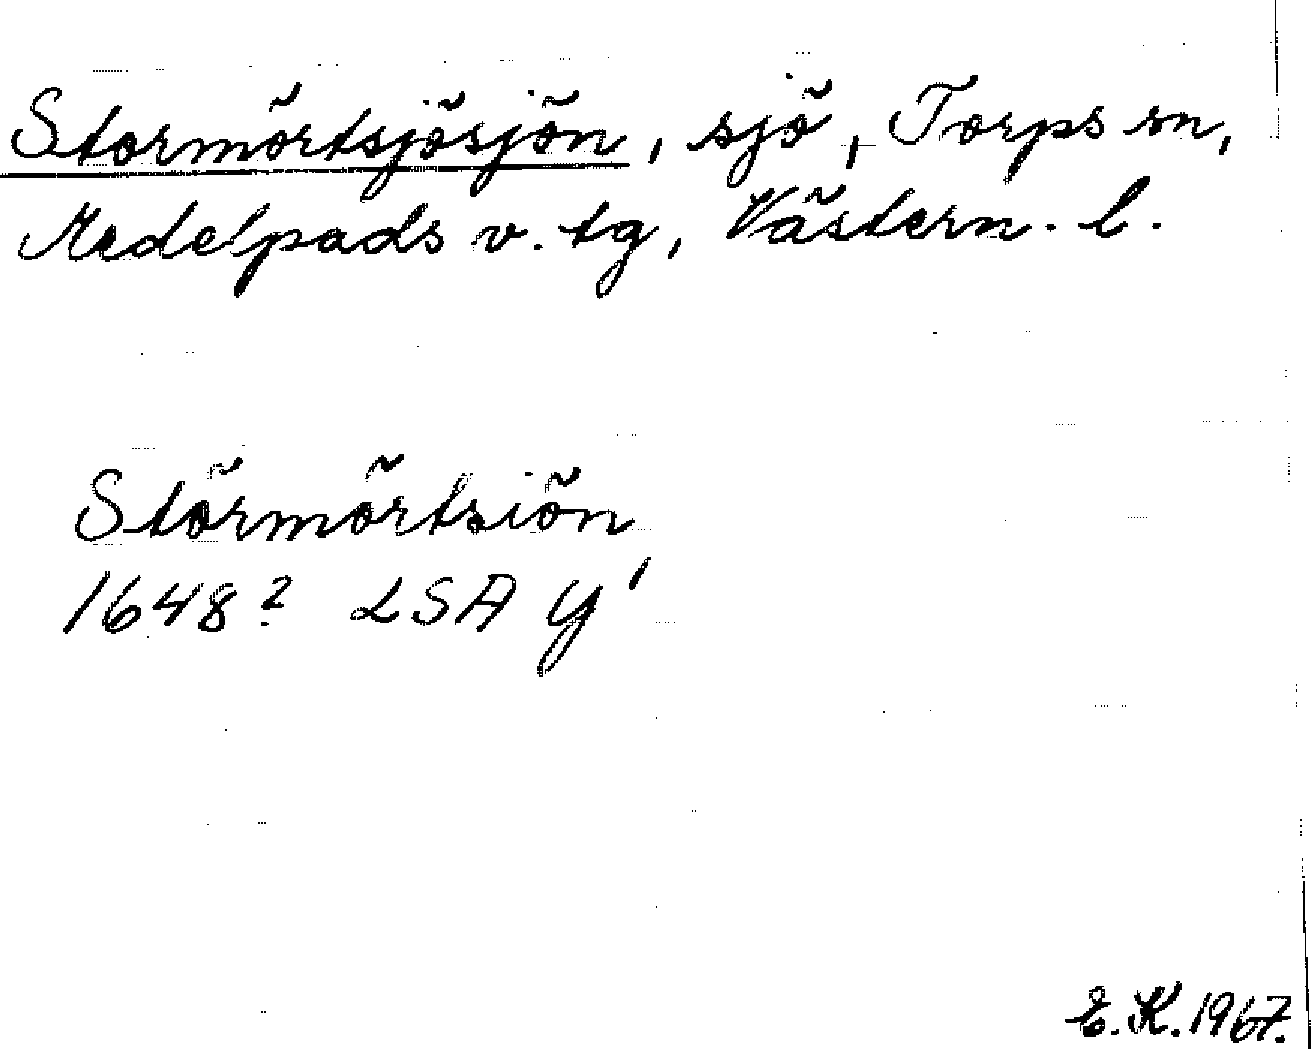 Stormörtsjösjön, sjö, Torps sn,
Medelpads v. tg, Västern. l.
Störmörtsiön
1648? LSA Y1
E.K. 1967.